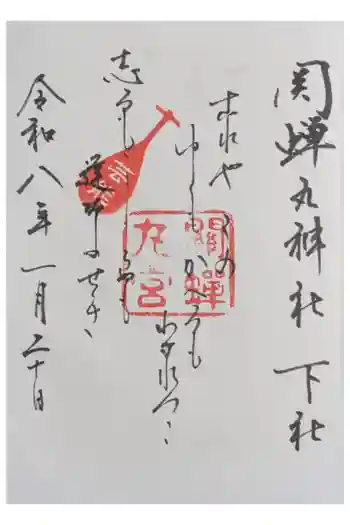 関蝉丸神社 下社
これやこの
ゆくもかへるも
わかれつゝ
志るもしらぬも
逢坂のせき
關蟬
丸宮
令和八年一月二十日